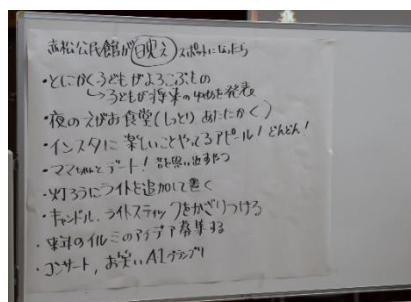 直松公民館が映えスポットになったら
・とにかく子どもがよろこぶもの
↳子どもが将来のゆめを発表
・夜のえがお食堂(しっとり あたたかく)
・インスタに楽しいことやってるアピール!どんどん!
・ママちゃんとデート! 昔を思い出すやつ
・灯ろうにライトを追加して置く
・キャンドル、ライトスティックをかざりつける
・来年のイルミのアイデア募集する
・コンサート、お笑いA1グランプリ